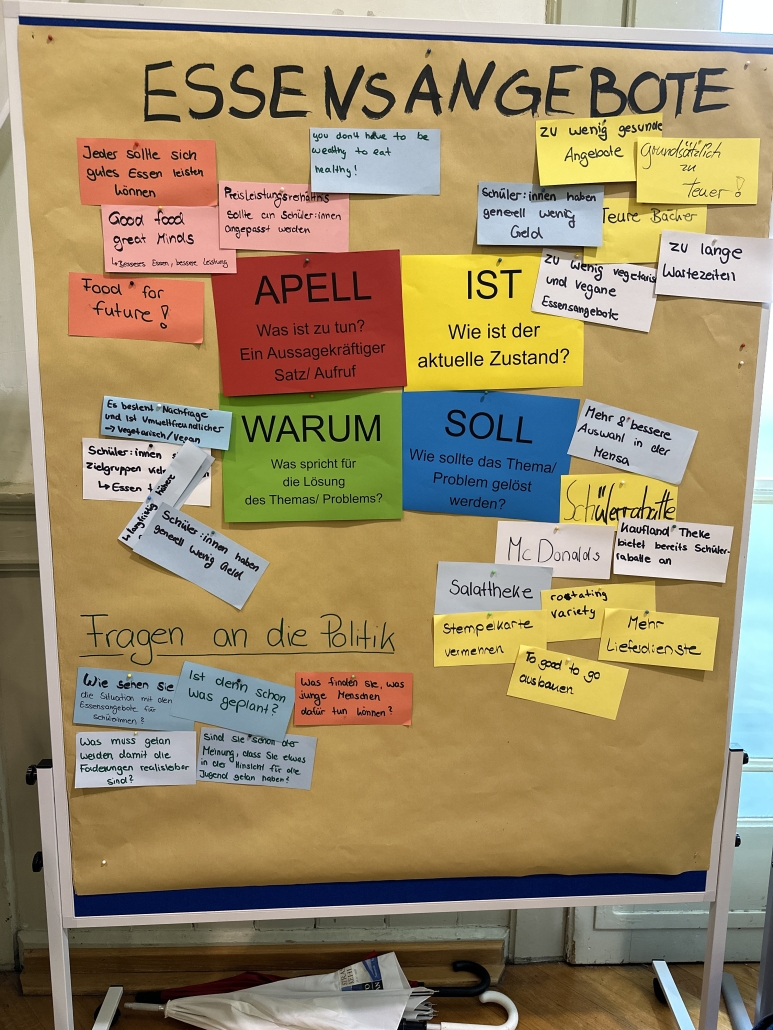 ESSENSANGEBOTE
Jeder sollte sich
gutes Essen leisten
können
Good food
great Minds
↳ Besseres Essen, bessere Leistung
Preisleistungsverhältnis
sollte an Schüler:innen
angepasst werden
you don't have to be
wealthy to eat
healthy!
Food for
future!
zu wenig gesunde
Angebote
Grundsätzlich
zu
teuer!
Schüler:innen haben
generell wenig
Geld
Teure Bäcker
zu lange
Wartezeiten
zu wenig vegetaris
und vegane
Essensangebote
APELL
Was ist zu tun?
Ein Aussagekräftiger
Satz/ Aufruf
IST
Wie ist der
aktuelle Zustand?
WARUM
Was spricht für
die Lösung
des Themas/ Problems?
SOLL
Wie sollte das Thema/
Problem gelöst
werden?
Es besteht Nachfrage
und ist Umweltfreundlicher
→ Vegetarisch/Vegan
Schüler:innen
Zielgruppen
↳ Essen
langfristig höhere
Schüler:innen haben
generell wenig Geld
Mehr & bessere
Auswahl in der
Mensa
Schülerrabatte
McDonalds
Kaufland Theke
bietet bereits Schüler-
rabatte an
Salattheke
rotating
variety
Stempelkarte
vermehren
Mehr
Lieferdienste
To good to go
ausbauen
Fragen an die Politik
Wie sehen sie
die Situation mit den
Essensangebote für
Schülerinnen?
Ist denn schon
was geplant?
Was finden sie, was
junge Menschen
dafür tun können?
Was muss getan
werden damit die
Forderungen realisiebar
sind?
Sind sie schon der
Meinung, dass Sie etwas
in der Hinsicht für die
Jugend getan haben?